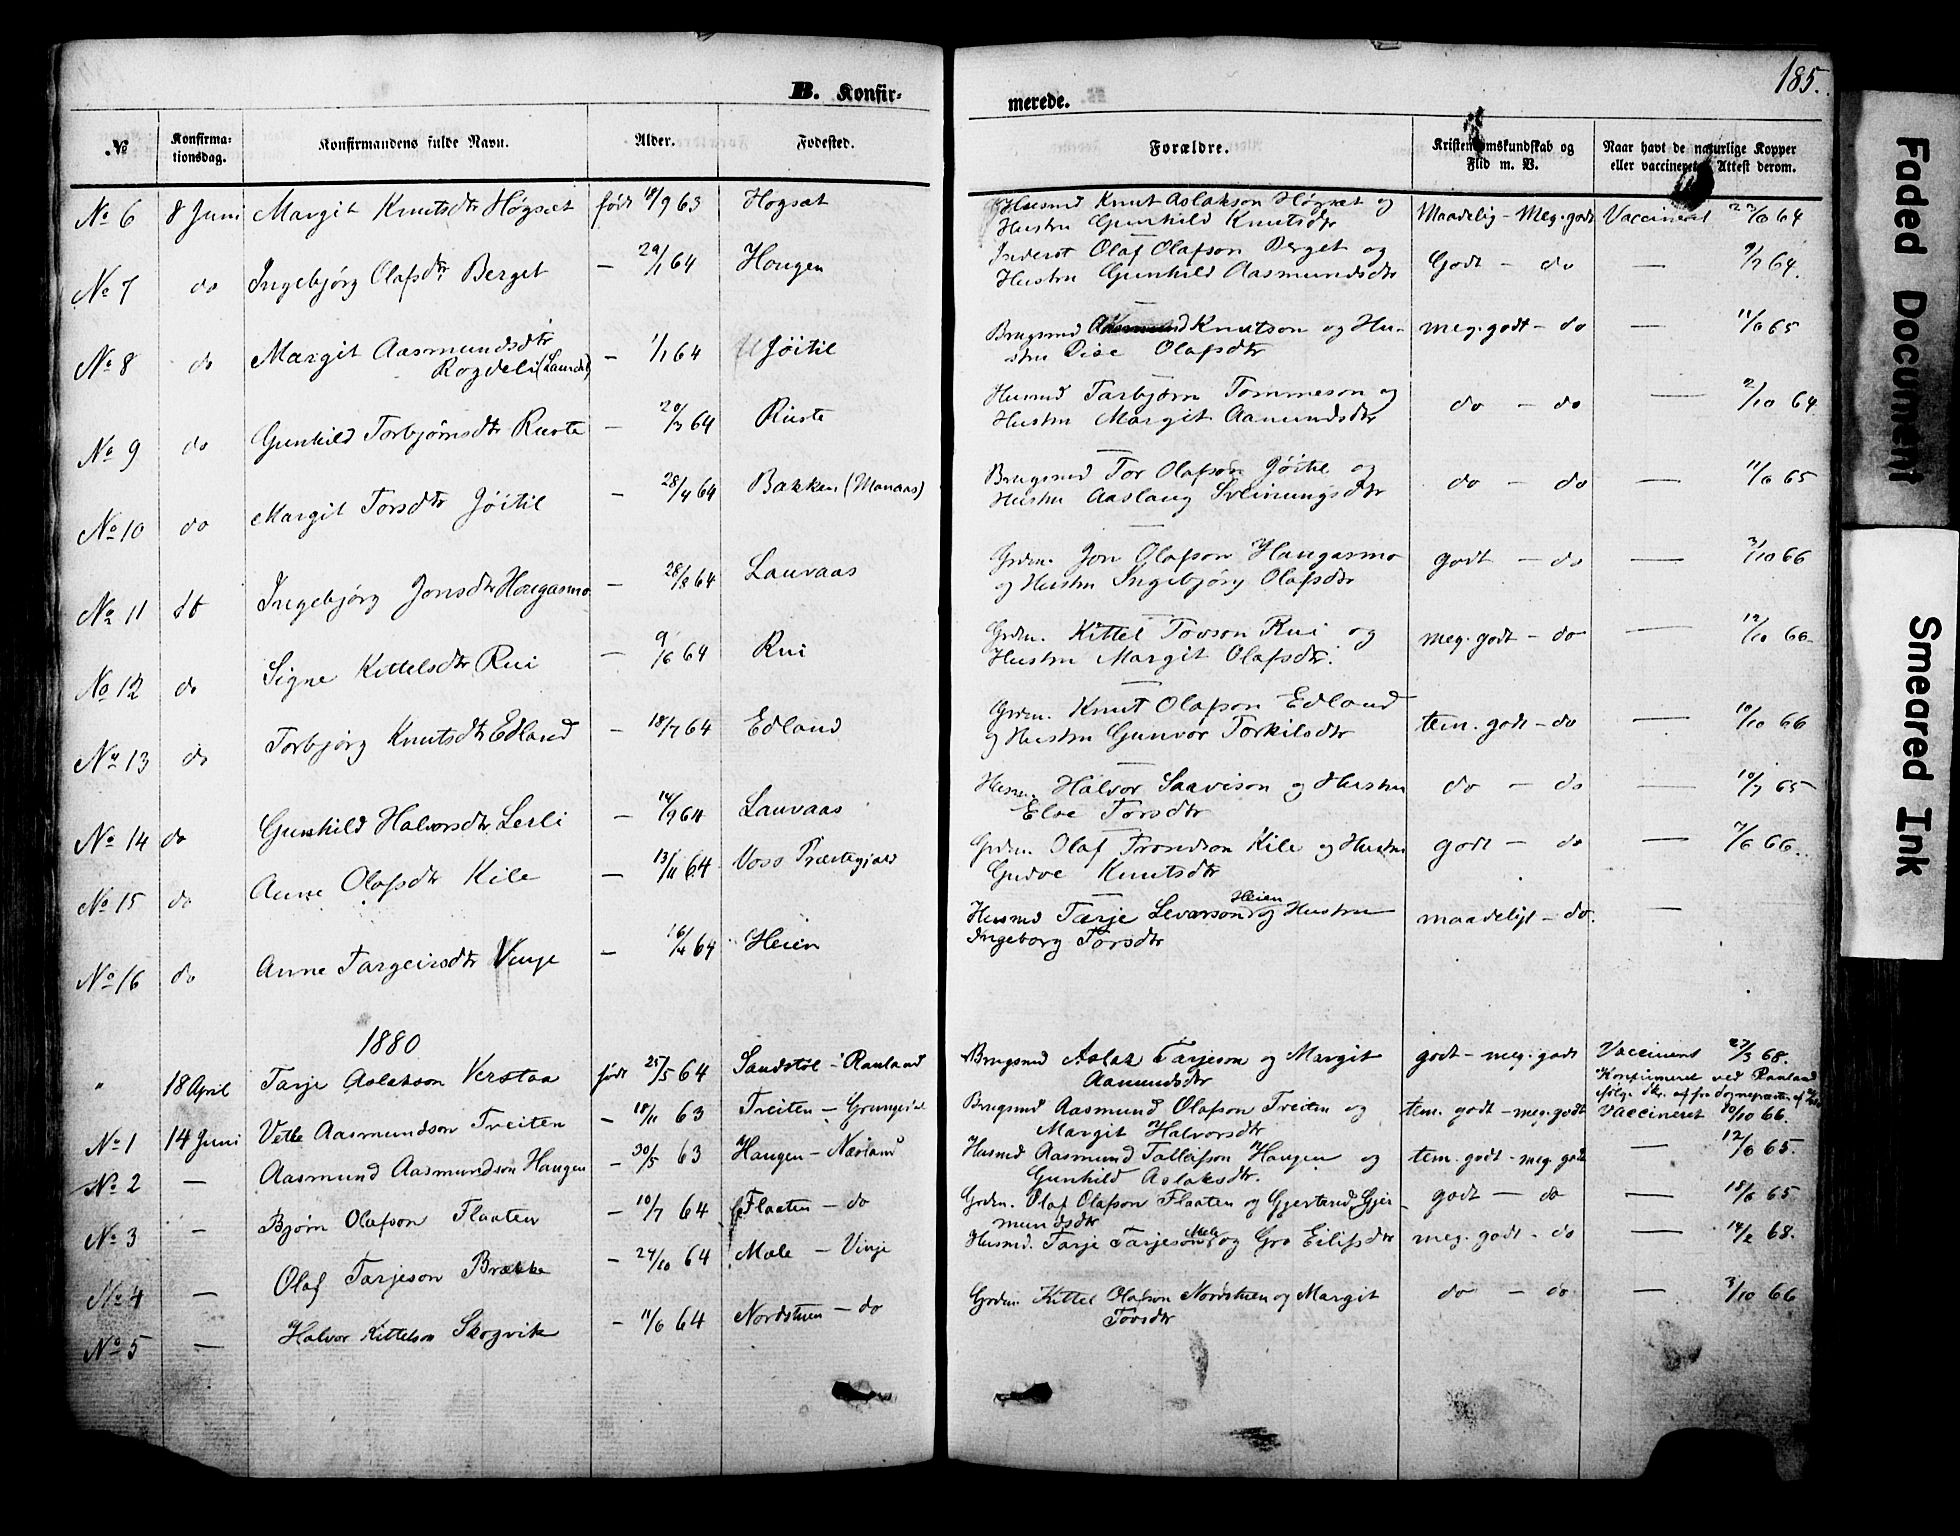 B. Konfir-
merede.
185.
№
Konfirma-
tionsdag.
Konfirmandens fulde Navn.
Alder.
Fødested.
Forældre.
Kristendomskundskab og
Flid m. V.
Naar havt de naturlige Kopper
eller vaccineret. Attest derom.
No 6 8 Juni Margit Knutsdtr Høgsæt født 18/9 63 Høgsæt Husmd Knut Aslakson Høgsæt og
Hustru Gunhild Knutsdtr Maadelig - Meg. godt Vaccineret 22/6 64
No 7 do Ingebjørg Olafsdtr Berget — 29/1 64 Hougen Inderst Olaf Olafson Berget og
Hustru Gunhild Aasmundsdtr Godt — do — 9/7 64.
No 8 do Margit Aasmundsdtr
Rogdeli — 1/1 64 Jøitil Brugsmd Knutson og Hu-
stru Dise Olafsdtr meg. godt — do — 11/6 65
No 9 do Gunhild Torbjørnsdtr Ruste — 20/3 64 Ruste Husmd Tarbjørn Tommeson og
Hustru Margit Aamundsdtr do — do — 2/10 64
No 10 do Margit Torsdtr Jøitil — 28/4 64 Bakken (Manaas) Brugsmd Tor Olafson Jøitil og
Hustru Aaslaug Sveinungsdtr do — do — 11/6 65
No 11 Ingebjørg Jonsdtr Hougasmo — 28/8 64 Lauvaas Grdm. Jon Olafson Haugasmo
og Hustru Ingebjørg Olafsdtr godt — do — 3/10 66
No 12 do Signe Kittelsdtr Rui — 9/6 64 Rui Grdm. Kittel Tovson Rui og
Hustru Margit Olafsdtr. meg. godt — do — 12/10 66
No 13 do Torbjørg Knutsdtr Edland — 18/7 64 Edland Grdm. Knut Olafson Edland
og Hustru Gunvor Torkilsdtr tem. godt — do — 10/10 66
No 14 do Gunhild Halvorsdtr Lerli — 14/9 64 Lauvaas Husm. Halvor Saavison og Hustru
Torsdtr do — do — 10/7 65
No 15 do Anne Olafsdtr Kile — 13/11 64 Voss Præstegjæld Grdm. Olaf Trondson Kile og Hustru
Gudve Knutsdtr godt — do — 7/6 66.
No 16 do Anne Targeirsdtr Vinje — 16/4 64 Heien Husmd Tarje Levorson Heien og Hustru
Ingeborg Torsdtr maadeligt — do. —
1880
" 18 April Tarje Aslakson Verstaa født 25/5 64 Sandstøl - Rauland Brugsmd Aslak Tarjeson og Margit
Aamundsdtr godt — meg. godt Vaccineret 27/3 68.
Konfirmeret ved Rauland
No 1 14 Juni Vetle Aasmundson Treiten — 18/11 63 Treiten — Grungedal Brugsmd Aasmund Olafson Treiten og
Margit Halvorsdtr tem. godt — meg. godt Vaccineret 20/10 66.
No 2 — Aasmund Aasmundson Haugen — 30/5 63 Haugen — Næsland Husmd Aasmund Talleifson Haugen og
Gunhild Aslaksdtr. tem. godt — meg. godt — 12/6 65.
No 3 — Bjørn Olafson Flaaten — 10/7 64 Flaaten — do Grdm. Olaf Olafson Flaaten og Gjertrud Gjer-
mundsdtr godt — do — 18/6 65
No 4 — Olaf Tarjeson Brække — 24/10 64 Mæle — Vinje Husmd. Tarje Tarjeson Mæle og Gro Eilifsdtr meg. godt — do — 14/2 68.
No 5 — Halvor Kittelson Skogvik — 11/6 64 Nordstuen — do Grdm. Kittel Olafson Nordstuen og Margit
Torsdtr do — do — 3/10 66
Faded Document
Smeared Ink